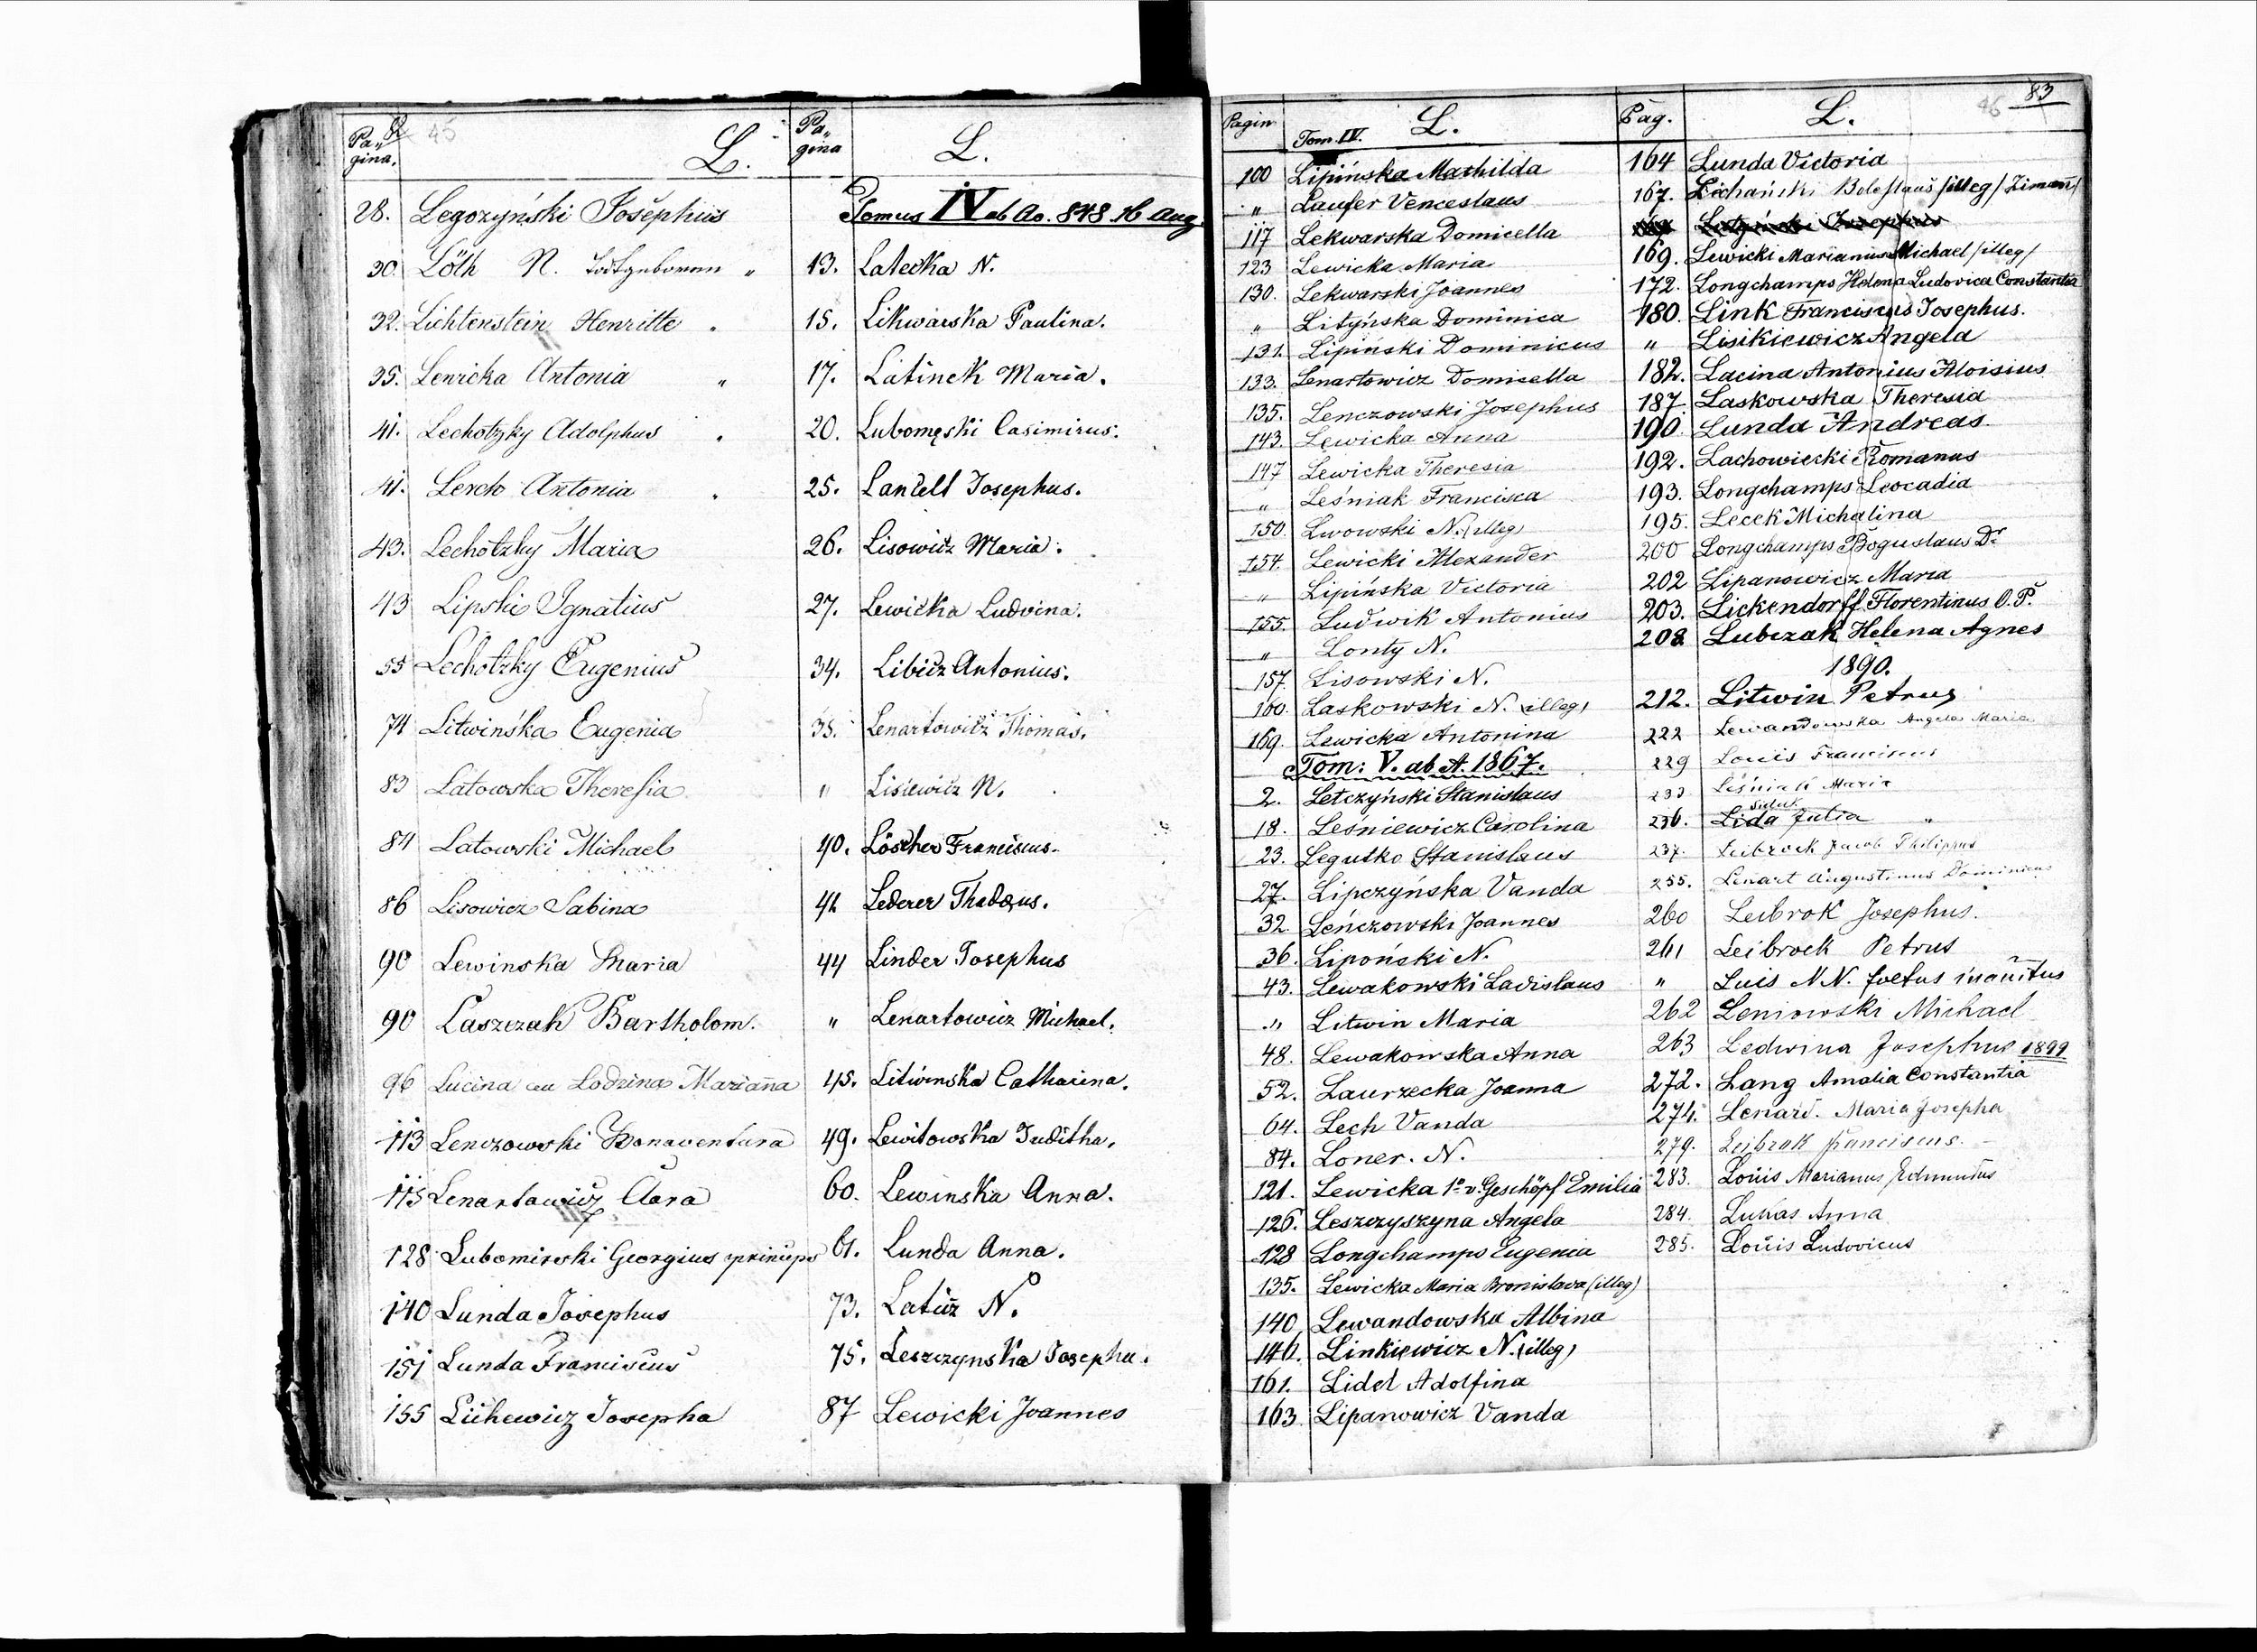 Pa-
gina.
L.
28. Legozyński Josephus
30. Löth N. Todtgeborenn "
32. Lichtenstein Henritte "
35. Lenicka Antonia "
41. Lechotzky Adolphus "
41. Lerch Antonia "
43. Lechotzky Maria
43 Lipski Ignatius
55 Lechotzky Eugenius
74 Litwińska Eugenia
83 Latowska Theresia
84 Latowski Michael
86 Lisowicz Sabina
90 Lewinska Maria
90 Laszczak Bartholom.
96 Lucina au Lodzina Marianna
113 Lenczowski Bonaventura
115 Lenartowicz Clara
128 Lubomirski Georgius princeps
140 Lunda Josephus
151 Lunda Franciscus
155 Lichewicz Josepha
Pa-
gina
L.
Tomus IV ab Ao. 848 16 Aug.
13. Latecka N.
15. Likwarska Paulina.
17. Latinek Maria.
20. Lubomęski Casimirus.
25. Lanzell Josephus.
26. Lisowicz Maria.
27. Lewicka Ludvina.
34. Libicz Antonius.
35. Lenartowicz Thomas.
" Lisiewicz N.
40. Löscher Franciscus.
41 Lederer Thadæus.
44 Linder Josephus
" Lenartowicz Michael.
45. Litwinska Catharina.
49. Lewitowska Juditha.
60. Lewinska Anna.
61. Lunda Anna.
73. Laticz N.
75. Leszczynska Josepha.
87 Lewicki Joannes
Pagin
Tom. IV. L.
100 Lipińska Mathilda
" Laufer Venceslaus
117 Lekwarska Domicella
123 Lewicka Maria
130. Lekwarski Joannes
" Lityńska Dominica
131. Lipiński Dominicus
133. Lenartowicz Domicella
135. Lenczowski Josephus
143. Lewicka Anna
147 Lewicka Theresia
" Leśniak Francisca
150. Lwowski N. (illeg)
154. Lewicki Alexander
" Lipińska Victoria
155. Ludwik Antonius
" Lonty N.
157. Lisowski N.
160. Laskowski N. (illeg)
169. Lewicka Antonina
Tom: V. ab A. 1867.
2. Letczyński Stanislaus
18. Leśniewicz Carolina
23. Legutko Stanislaus
27. Lipczyńska Vanda
32. Leńczowski Joannes
36. Lipoński N.
43. Lewakowski Ladislaus
" Litwin Maria
48. Lewakowska Anna
52. Laurzecka Joanna
64. Lech Vanda
84. Loner. N.
121. Lewicka 1º v. Geschöpf Emilia
126. Leszczyszyna Angela
128 Longchamps Eugenia
135. Lewicka Maria Bronislava (illeg)
140 Lewandowska Albina
146. Linkiewicz N. (illeg)
161. Lidel Adolfina
163 Lipanowicz Vanda
Pag.
L.
83
164 Lunda Victoria
167. Lichański Boleslaus /illeg/
169. Lewicki Marianus Michael /illeg/
172. Longchamps Helena Ludovica Constantia
180. Link Franciscus Josephus.
" Lisikiewicz Angela
182. Lacina Antonius Aloisius
187 Laskowska Theresia
190. Lunda Andreas.
192. Lachowiecki Romanus
193. Longchamps Leocadia
195. Lecek Michalina
200 Longchamps Boguslaus Dr
202 Lipanowicz Maria
203. Lickendorff Florentinus O.P.
208 Lubczak Helena Agnes
1890.
212. Litwin Petrus
222 Lewandowska Angela Maria
229 Louis Franciscus
Leśniak Maria
236. Lida Julia "
237. Leibrock Jacob Philippus
255. Lenart Augustinus
260 Leibrok Josephus.
261 Leibrock Petrus
" Luis NN. foetus
262 Leniowski Michael
263 Ledwina Josephus 1899
272. Lang Amalia Constantia
274. Lenard. Maria Josepha
279. Leibrak Franciscus.
283. Louis Marianus Edmundus
284. Lukas Anna
285. Louis Ludovicus